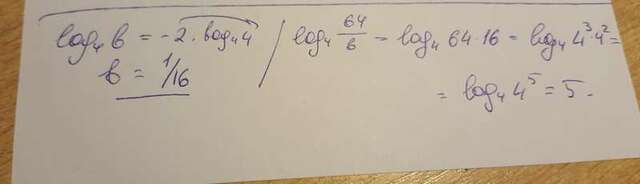 log₄ b = -2 · log₄ 4 / log₄ 64/b = log₄ 64 · 16 = log₄ 4³ · 4² =
b = 1/16
= log₄ 4⁵ = 5.